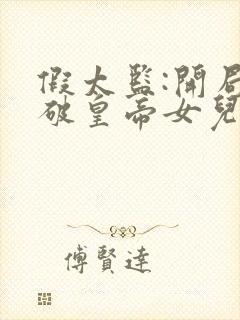 假太監:開局
破皇帝女兒
傅賢達